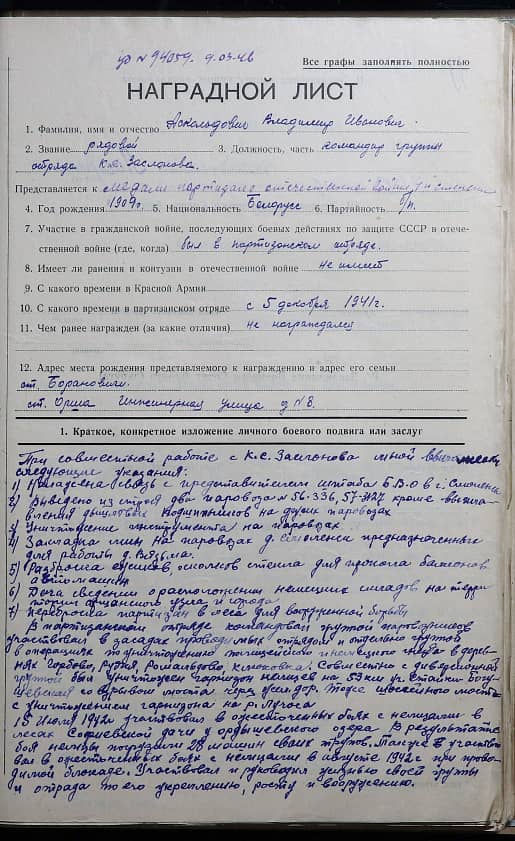 № 94059. 9.03.46
Все графы заполнять полностью
НАГРАДНОЙ ЛИСТ
1. Фамилия, имя и отчество Аскольдович Владимир Иванович.
2. Звание рядовой 3. Должность, часть командир группы
отряда К.С. Заслонова.
Представляется к медали партизана отечественной войны степени
4. Год рождения 1909г. 5. Национальность Белорус 6. Партийность б/п.
7. Участие в гражданской войне, последующих боевых действиях по защите СССР в отече-
ственной войне (где, когда) был в партизанском отряде.
8. Имеет ли ранения и контузии в отечественной войне не имеет
9. С какого времени в Красной Армии
10. С какого времени в партизанском отряде с 5 декабря 1941г.
11. Чем ранее награжден (за какие отличия) не награждался
12. Адрес места рождения представляемого к награждению и адрес его семьи
ст. Борановичи.
ст. Орша Инженерная улица д № 8.
1. Краткое, конкретное изложение личного боевого подвига или заслуг
При совместной работе с К.С. Заслонова мной
следующие указания:
1) Налажена связь с представителем штаба Б.В.О в г. Смоленске
2) Выведено из строя два паровоза № 56-336, 57-427 кроме
подшипников на других паровозах
3) Уничтожение инструмента на паровозах
4) Закладка мин на паровозах д. Смоленск предназначенные
для работы д. Вязьма.
5) Разброска стекла для прокола балонов
автомашин
6) Дача сведении о расположении немецких складов на терри
тории узла и города
7) Переброска партизан в леса для вооруженной борьбы
В партизанском отряде командовал группой паровозников
участвовал в засадах проводимых отрядом и отдельно группой
в операциях по уничтожению полицейского и немецкого гнезда в дерев-
нях Гордово, Рудня, Ромальдово, Совместно с диверсионной
группой был уничтожен гарнизон немцев на 53 км уч. Стайки-Богу-
шевская со взрывом моста через жел.дор. Тоже шоссейного моста
с уничтожением гарнизона на р. Лучоса
15 Июля 1942г участвовал в ожесточенных боях с немцами в
лесах Софиевской дачи у озера В результате
боя немцы погрузили 28 машин своих трупов. Также участво
вал в ожесточенных боях с немцами в августе 1942г при прово-
димой блокаде. Участвовал и руководил жизнью своей группы
и отряда по его укреплению, росту и вооружению.